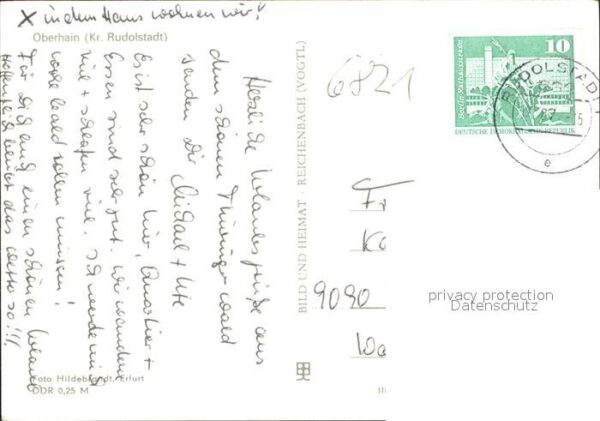 X in dem Haus wohnen wir!
Oberhain (Kr. Rudolstadt)
Herzliche Urlaubsgrüße aus
dem schönen Thüringer Wald
senden Dir Michael + Ute
Es ist sehr schön hier, Quartier +
Essen sind sehr gut. Wir wandern
viel + schlafen viel.
wohl bald rollen müssen!
Für Dich auch einen schönen Urlaub
Hoffentlich bleibt das Wetter so!!!
Foto Hildebrandt, Erfurt
DDR 0,25 M
BILD UND HEIMAT · REICHENBACH (VOGTL)
6821
10
DEUTSCHE DEMOKRATISCHE REPUBLIK
RUDOLSTADT 1
e
9090
privacy protection
Datenschutz